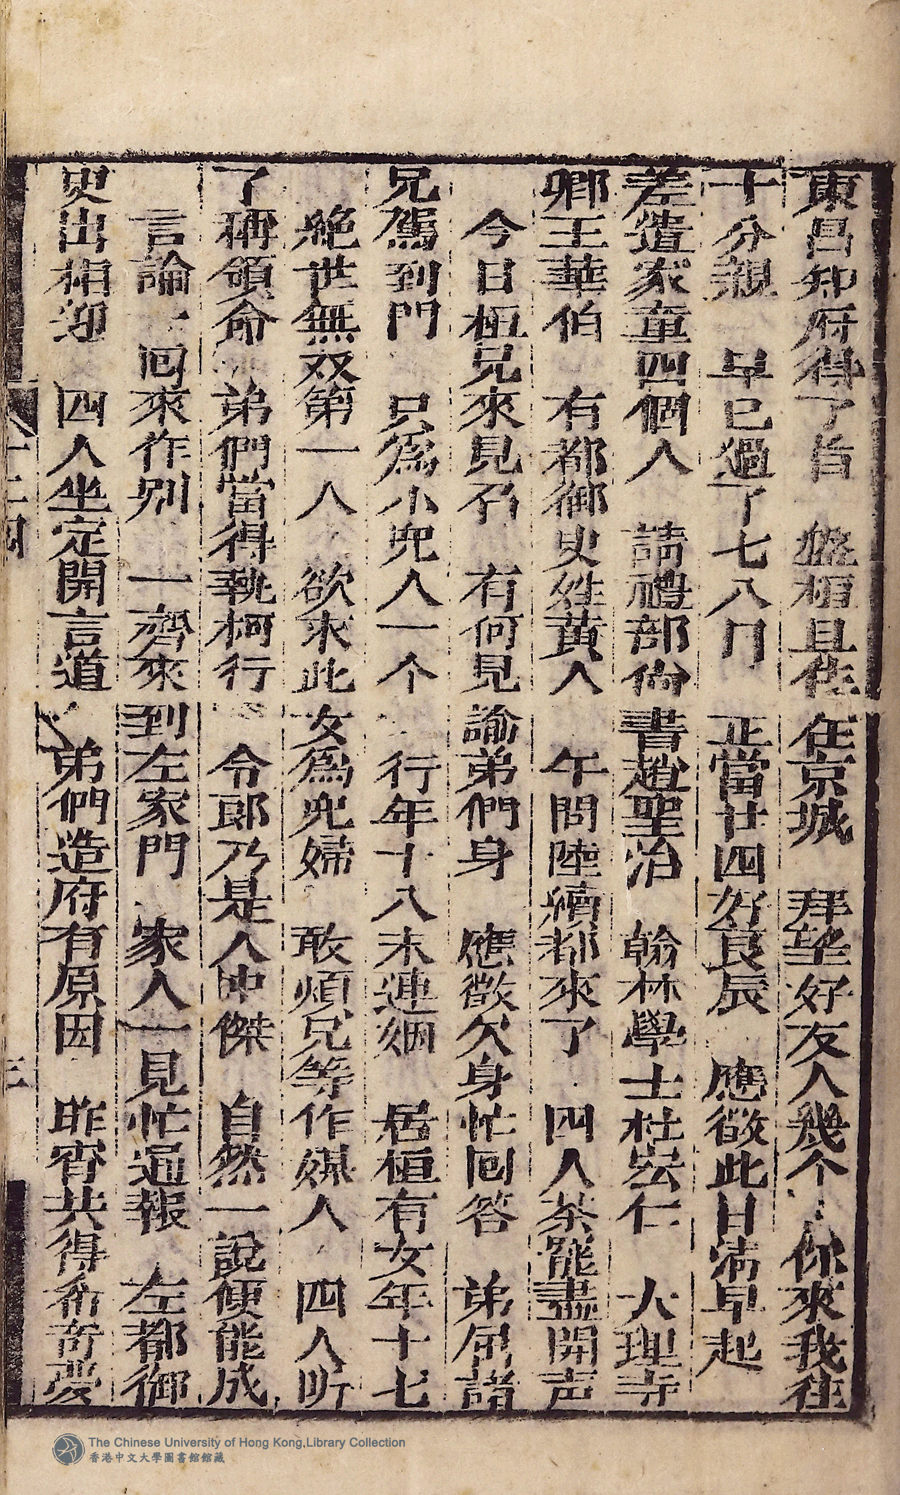 東昌知府得了旨　盤桓且住在京城　拜望好友人幾个　你來我往
十分親　早已過了七八月　正當廿四好良辰　應徵此日淸早起
差遣家童四個人　請禮部尙書趙聖治　翰林學士杜宏仁　大理寺
卿王華伯　右都御史姓黃人　午間陸續都來了　四人茶罷盡開声
今日桓兄來見召　有何見諭弟們身　應徵欠身忙回答　弟屈諸
兄駕到門　只爲小兒人一个　行年十八未連姻　居桓有女年十七
絶世無双第一人　欲求此女爲兒婦　敢煩兄等作媒人　四人听
了稱領命　弟們當得執柯行　令郎乃是人中傑　自然一說便能成
言論一回來作别　一齊來到左家門　家人一見忙通報　左都御
史出相迎　四人坐定開言道　弟們造府有原因　昨宵共得希奇夢
二四
三
The Chinese University of Hong Kong,Library Collection
香港中文大學圖書館館藏